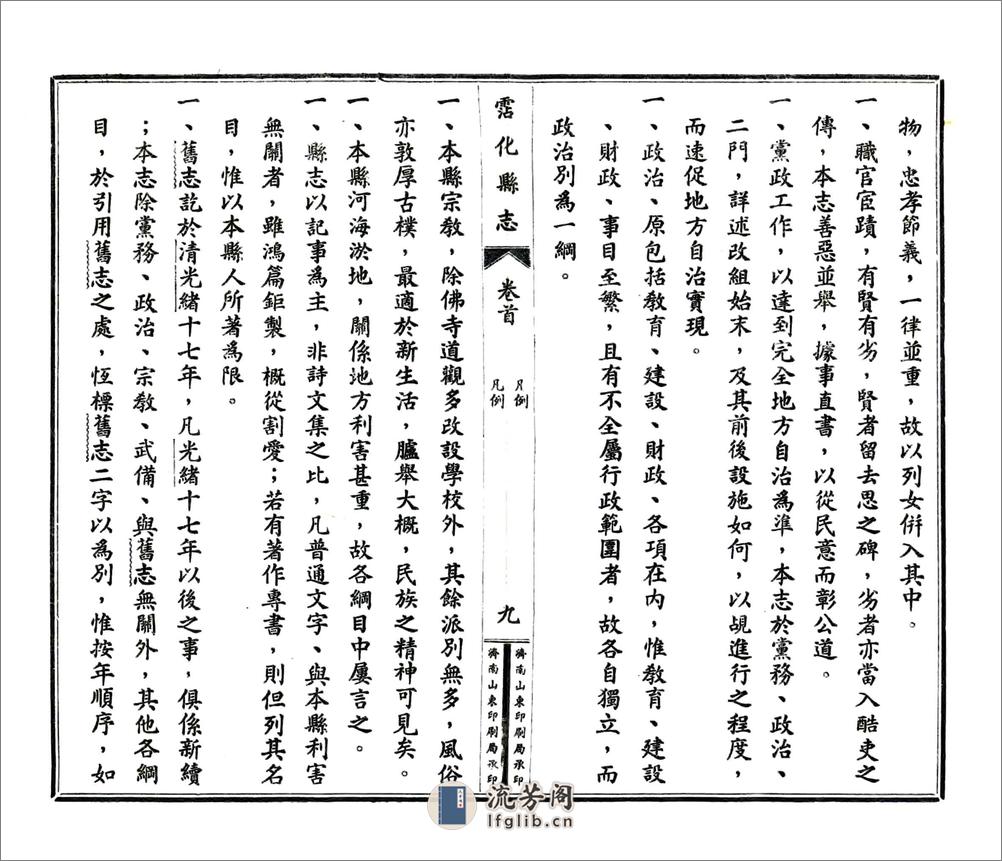 物，忠孝節義，一律並重，故以列女併入其中。
一、職官宦蹟，有賢有劣，賢者留去思之碑，劣者亦當入酷吏之
傳，本志善惡並舉，據事直書，以從民意而彰公道。
一、黨政工作，以達到完全地方自治為準，本志於黨務、政治、
二門，詳述改組始末，及其前後設施如何，以覘進行之程度，
而速促地方自治實現。
一、政治、原包括敎育、建設、財政、各項在內，惟敎育、建設
、財政、事目至繁，且有不全屬行政範圍者，故各自獨立，而
政治別為一綱。
霑化縣志
卷首
凡例
凡例
九
濟南山東印刷局承印
濟南山東印刷局承印
一、本縣宗敎，除佛寺道觀多改設學校外，其餘派別無多，風俗
亦敦厚古樸，最適於新生活，臚舉大概，民族之精神可見矣。
一、本縣河海淤地，關係地方利害甚重，故各綱目中屢言之。
一、縣志以記事為主，非詩文集之比，凡普通文字、與本縣利害
無關者，雖鴻篇鉅製，概從割愛；若有著作專書，則但列其名
目，惟以本縣人所著為限。
一、舊志訖於清光緒十七年，凡光緒十七年以後之事，俱係新續
；本志除黨務、政治、宗敎、武備、與舊志無關外，其他各綱
目，於引用舊志之處，恆標舊志二字以為別，惟按年順序，如
流芳阁
lfglib.cn